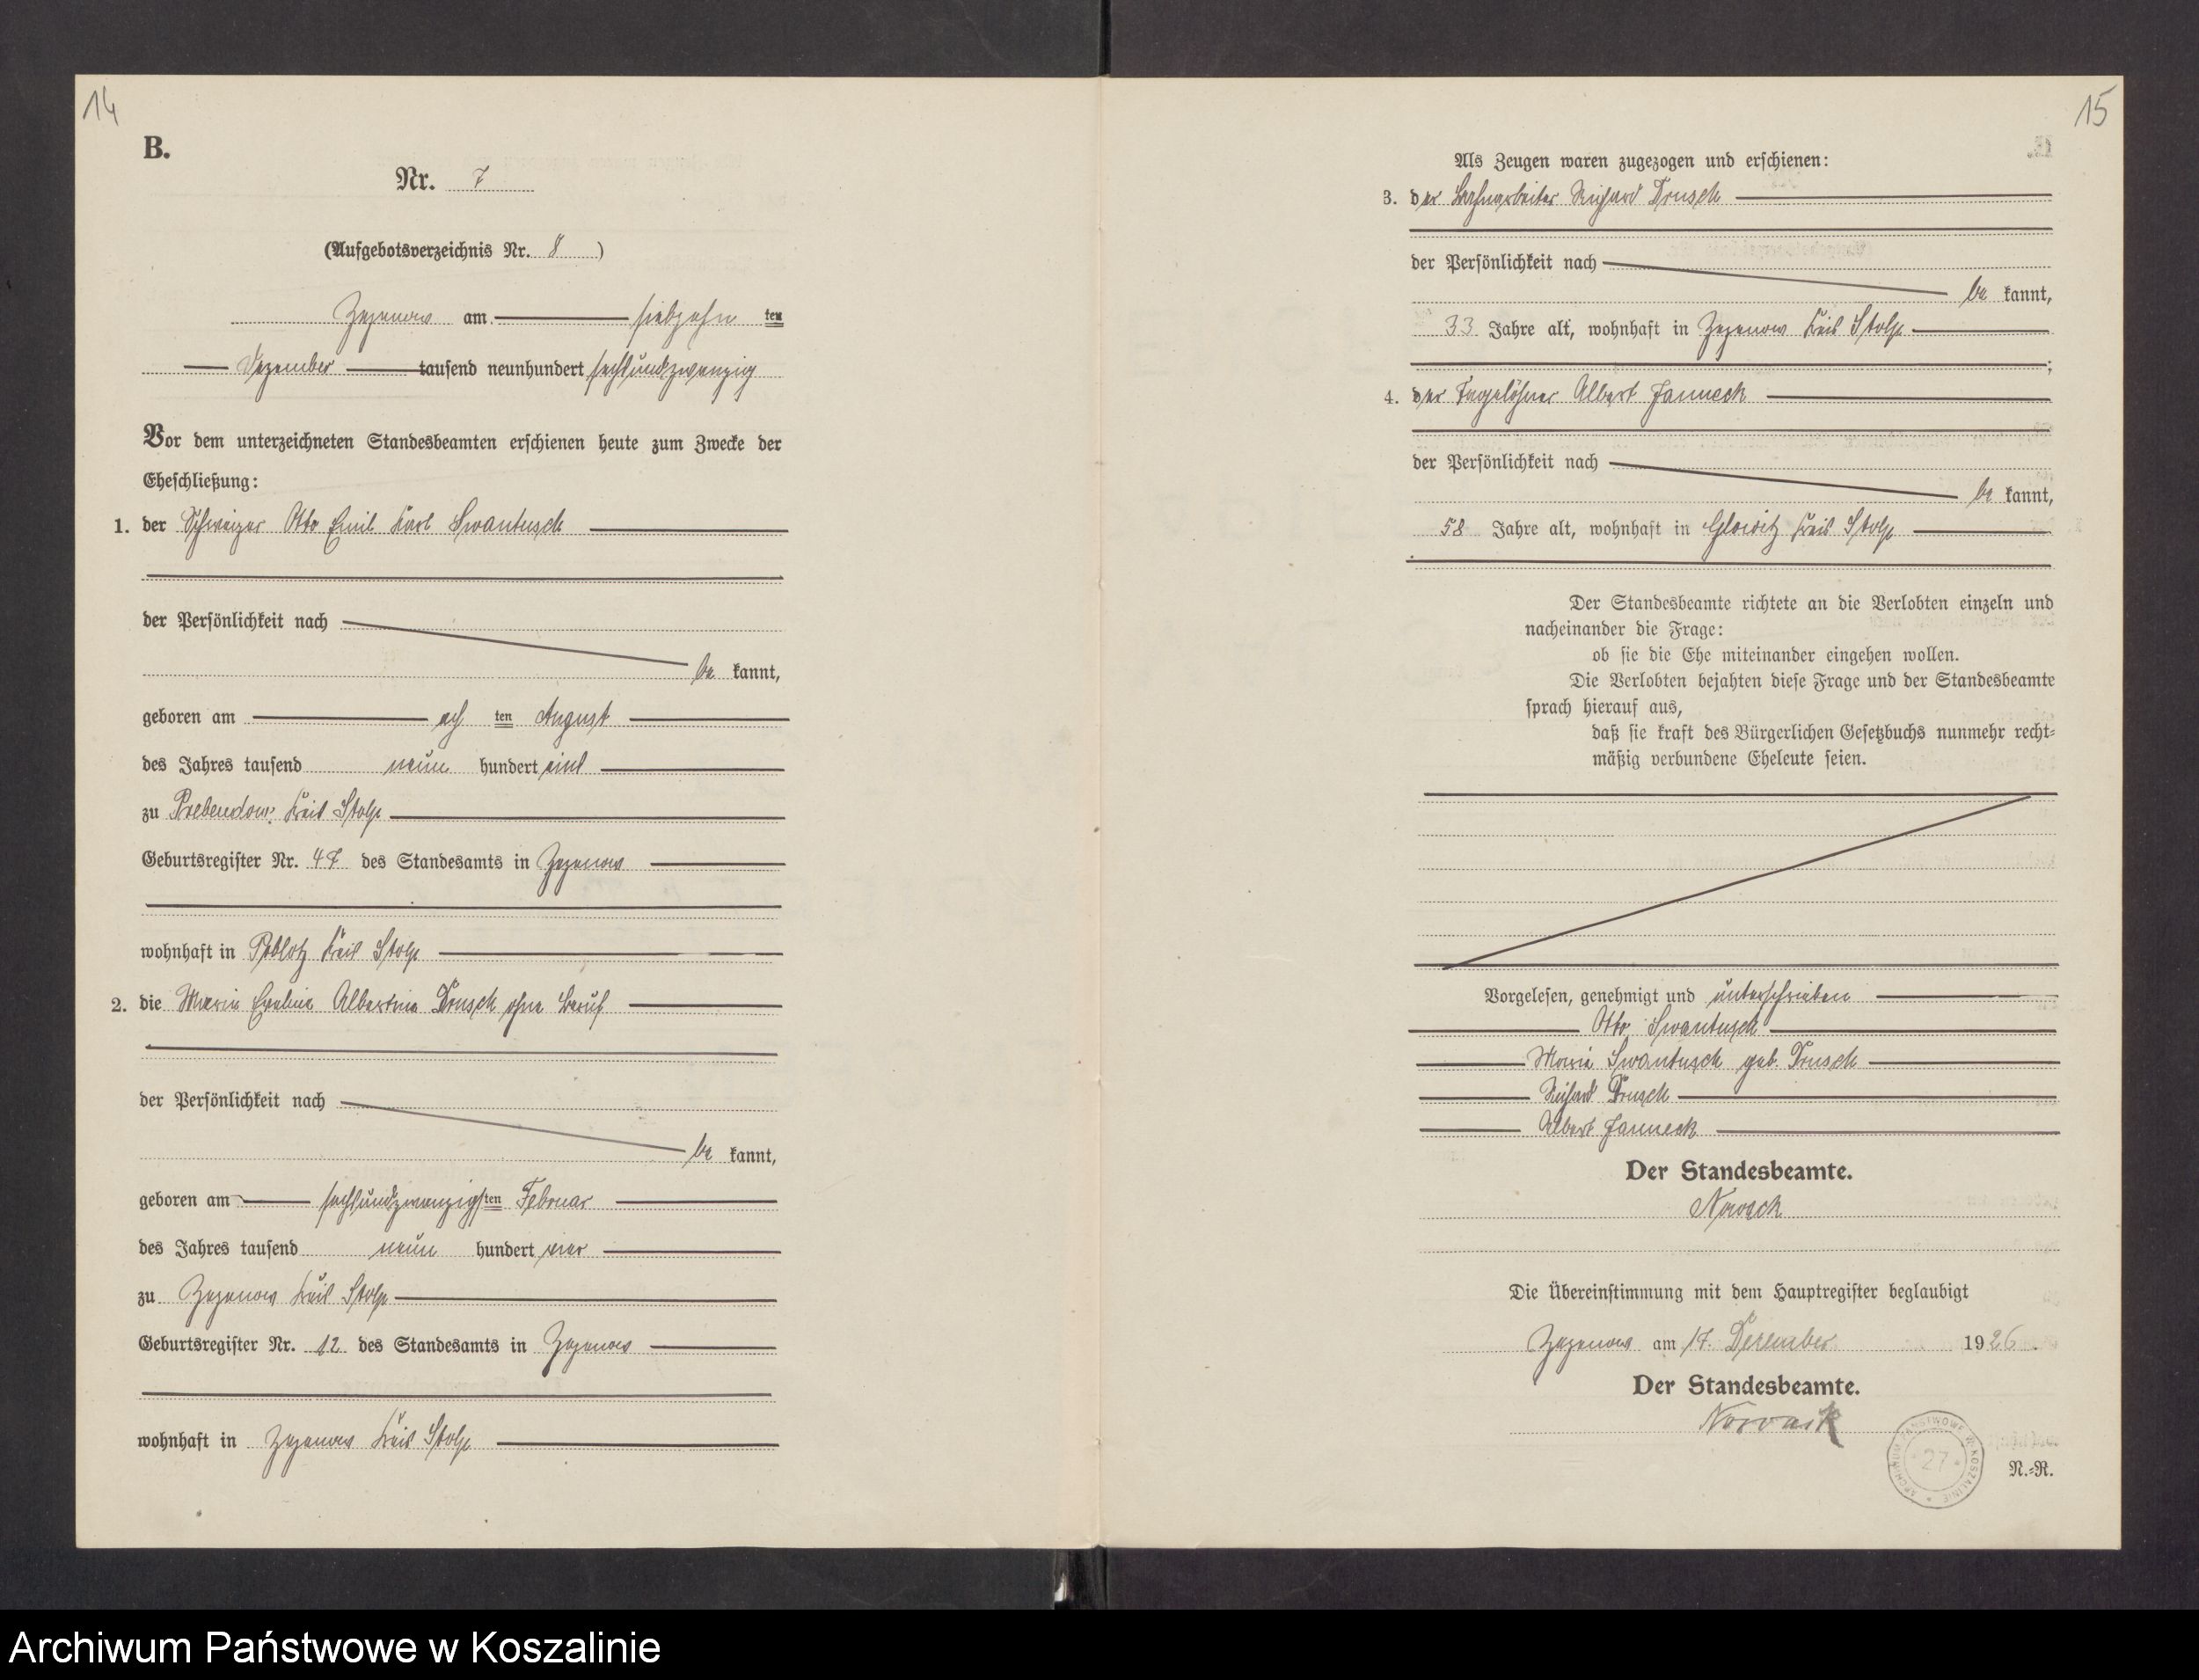 14
B.
Nr. 7
(Aufgebotsverzeichnis Nr. 8)
Zezenow am siebzehn ten
Dezember tausend neunhundert sechsundzwanzig
Vor dem unterzeichneten Standesbeamten erschienen heute zum Zwecke der
Eheschließung:
1. der Schweizer Otto Emil Karl Swantusch
der Persönlichkeit nach
be kannt,
geboren am ach ten August
des Jahres tausend neun hundert eins
zu Prebendow Kreis Stolp
Geburtsregister Nr. 47 des Standesamts in Zezenow
wohnhaft in Poblotz Kreis Stolp
2. die Marie Eveline Albertine Drusch ohne Beruf
der Persönlichkeit nach
be kannt,
geboren am sechsundzwanzigsten Februar
des Jahres tausend neun hundert vier
zu Zezenow Kreis Stolp
Geburtsregister Nr. 12 des Standesamts in Zezenow
wohnhaft in Zezenow Kreis Stolp
15
Als Zeugen waren zugezogen und erschienen:
3. der Bahnarbeiter Richard Drusch
der Persönlichkeit nach
be kannt,
33 Jahre alt, wohnhaft in Zezenow Kreis Stolp
;
4. der Tagelöhner Albert Janneck
der Persönlichkeit nach
be kannt,
58 Jahre alt, wohnhaft in Glowitz Kreis Stolp
Der Standesbeamte richtete an die Verlobten einzeln und
nacheinander die Frage:
ob sie die Ehe miteinander eingehen wollen.
Die Verlobten bejahten diese Frage und der Standesbeamte
sprach hierauf aus,
daß sie kraft des Bürgerlichen Gesetzbuchs nunmehr recht-
mäßig verbundene Eheleute seien.
Vorgelesen, genehmigt und unterschrieben
Otto Swantusch
Marie Swantusch geb. Drusch
Richard Drusch
Albert Janneck
Der Standesbeamte.
Nowack
Die Übereinstimmung mit dem Hauptregister beglaubigt
Zezenow am 17. Dezember 1926.
Der Standesbeamte.
Nowack
ARCHIWUM PAŃSTWOWE W KOSZALINIE
27
N.-R.
Archiwum Państwowe w Koszalinie